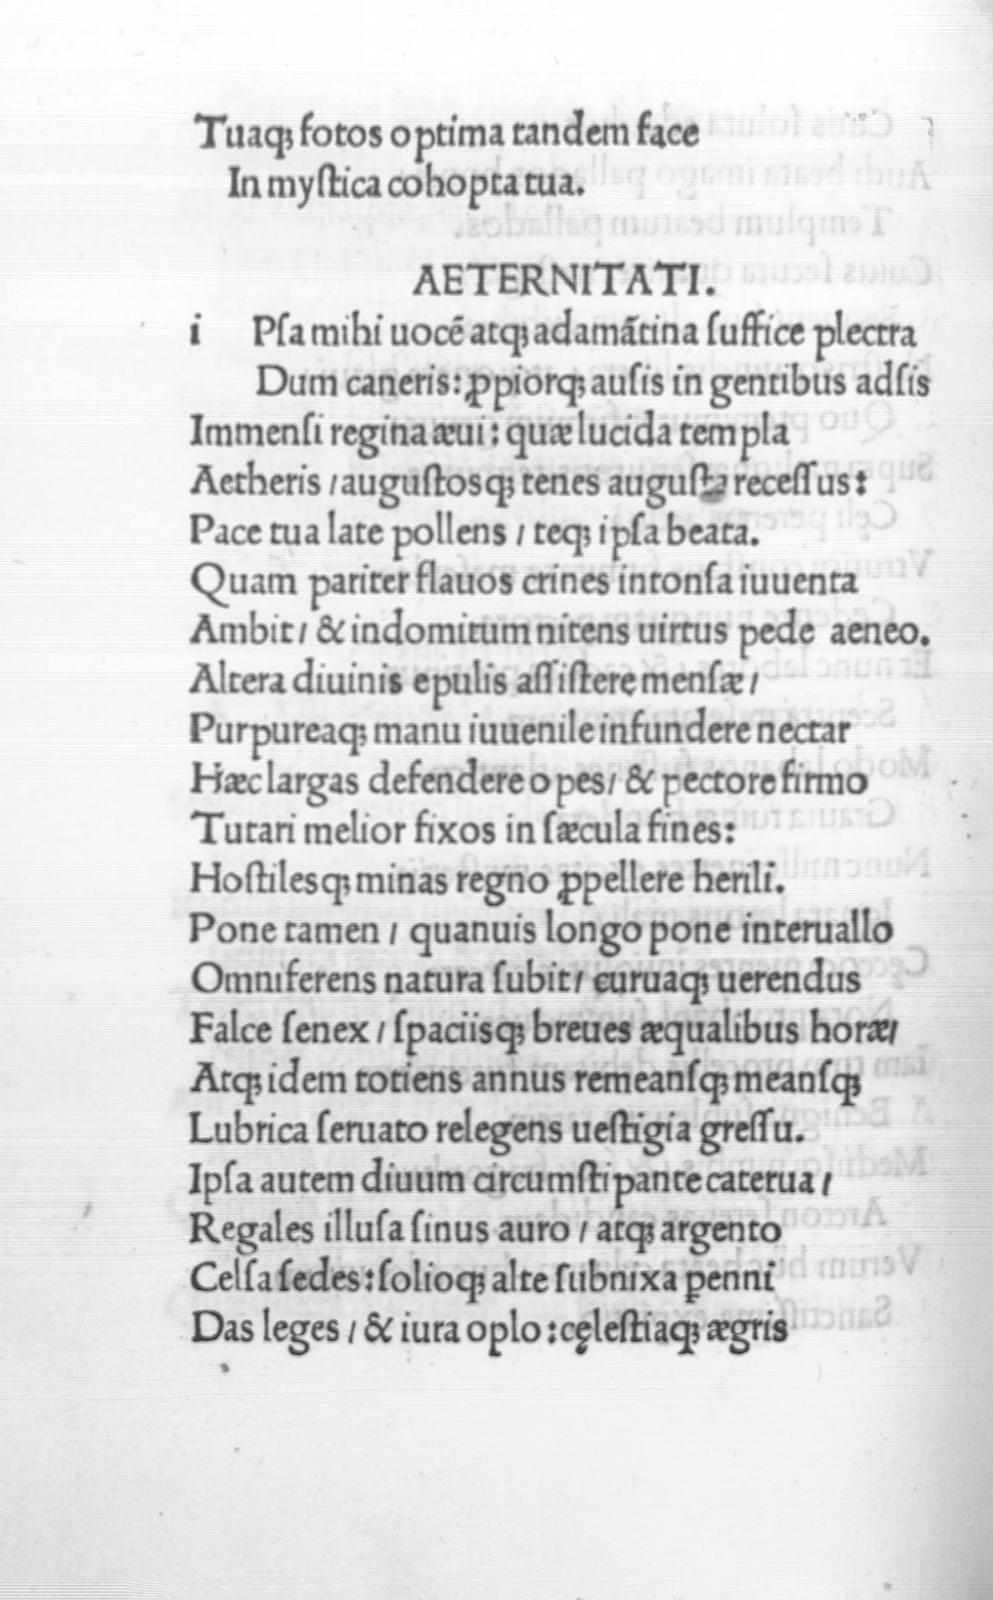 Tuaq; fotos optima tandem face
In myſtica cohopta tua.
AETERNITATI.
i Pſa mihi uocē atq; adamātina ſuffice plectra
Dum caneris: ꝓpiorq; auſis in gentibus adſis
Immenſi regina æui: quæ lucida templa
Aetheris / auguſtosq; tenes auguſta receſſus:
Pace tua late pollens / teq; ipſa beata.
Quam pariter flauos crines intonſa iuuenta
Ambit / & indomitum nitens uirtus pede aeneo.
Altera diuinis epulis aſſiſterę menſæ /
Purpureaq; manu iuuenile infundere nectar
Hæc largas defendere opes / & pectore firmo
Tutari melior fixos in ſæcula fines:
Hoſtilesq; minas regno ꝓpellere herili.
Pone tamen / quanuis longo pone interuallo
Omniferens natura ſubit / curuaq; uerendus
Falce ſenex / ſpaciisq; breues æqualibus horæ /
Atq; idem totiens annus remeanſq; meanſq;
Lubrica ſeruato relegens ueſtigia greſſu.
Ipſa autem diuum circumſtipante caterua /
Regales illuſa ſinus auro / atq; argento
Celſa ſedes: ſolioq; alte ſubnixa ꝑenni
Das leges / & iura oplo: cęleſtiaq; ægris